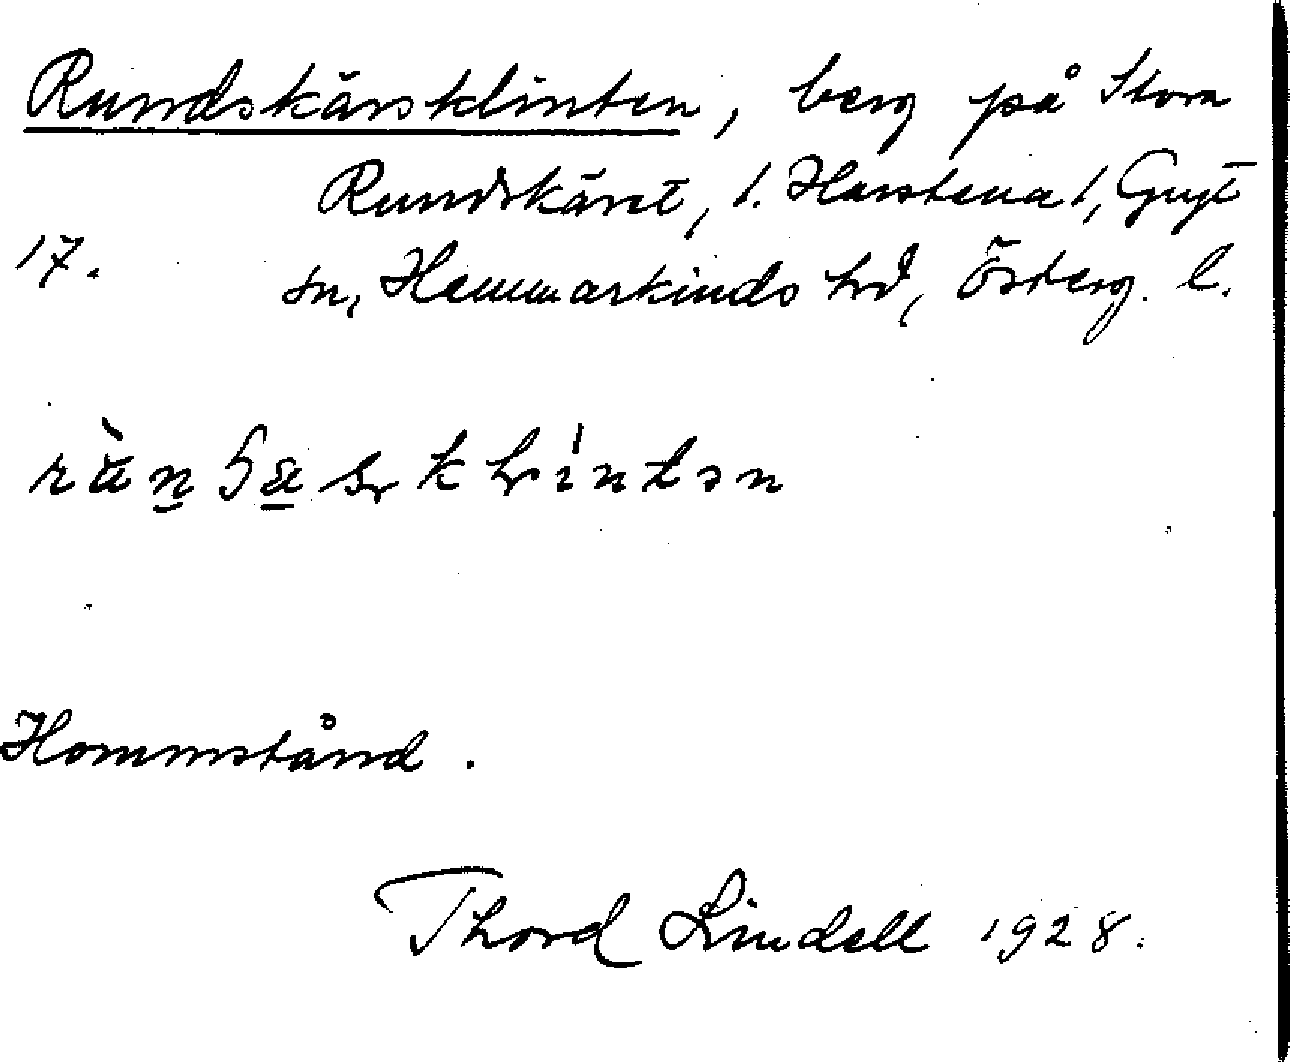 Rundskärsklinten, berg på Stora
Rundskäret, l. Harstena 1, Gryt
17. sn, Hammarkinds hd, Österg. l.
Hommstånd.
Thord Lindell 1928.